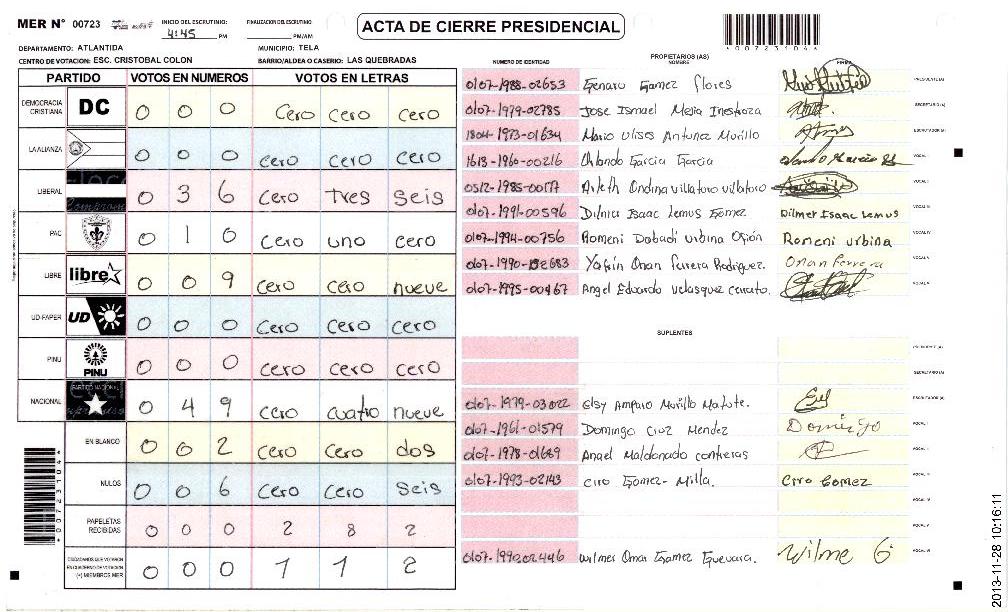 MER N° 00723 INICIO DEL ESCRUTINIO: 4:45 PM FINALIZACION DEL ESCRUTINIO PM/AM
ACTA DE CIERRE PRESIDENCIAL
*00723104*
DEPARTAMENTO: ATLANTIDA MUNICIPIO: TELA
CENTRO DE VOTACION: ESC. CRISTOBAL COLON BARRIO/ALDEA O CASERIO: LAS QUEBRADAS
PARTIDO VOTOS EN NUMEROS VOTOS EN LETRAS
DEMOCRACIA CRISTIANA DC 0 0 0 Cero Cero cero
LA ALIANZA 0 0 0 cero cero cero
LIBERAL 0 3 6 Cero Tres Seis
PAC 0 1 0 Cero uno cero
LIBRE libre 0 0 9 Cero Cero nueve
UD-FAPER UD 0 0 0 Cero Cero Cero
PINU PINU 0 0 0 cero cero cero
NACIONAL 0 4 9 cero cuatro nueve
EN BLANCO 0 0 2 cero cero dos
NULOS 0 0 6 Cero Cero Seis
PAPELETAS RECIBIDAS 0 0 0 2 8 2
CIUDADANOS QUE VOTARON EN CUADERNO DE VOTACION (+) MIEMBROS MER 0 0 0 1 1 2
*00723104*
PROPIETARIOS (AS)
NUMERO DE IDENTIDAD NOMBRE FIRMA
0107-1988-02653 Genaro Gomez flores PRESIDENTE (A)
0107-1979-02785 Jose Ismael Mejia Inestroza SECRETARIO (A)
1804-1973-01634 Mario Ulises Antunez Murillo ESCRUTADOR (A)
1613-1960-00216 Orlando Garcia Garcia VOCAL I
0512-1985-00177 Arleth Ondina villatoro villatoro VOCAL II
0107-1991-00596 Dilmer Isaac Lemus Gomez Dilmer Isaac Lemus VOCAL III
0107-1994-00756 Romeni Dabadi urbina Romeni urbina VOCAL IV
0107-1990-02683 Onan Ferrera Rodriguez. Onan Ferrera VOCAL V
0107-1995-00467 Angel Eduardo Velasquez cerrato. VOCAL VI
SUPLENTES
PRESIDENTE (A)
SECRETARIO (A)
0107-1979-03022 Elsy Amparo Murillo Matute. ESCRUTADOR (A)
0107-1961-01579 Domingo Cruz Mendez Domingo VOCAL I
0107-1978-01689 Angel Maldonado contreras VOCAL II
0107-1993-02143 Ciro Gomez- Milla. Ciro Gomez VOCAL III
VOCAL IV
VOCAL V
0107-199202446 Wilmer Omar Gamez Guevara. Wilme G VOCAL VI
2013-11-28 10:16:11